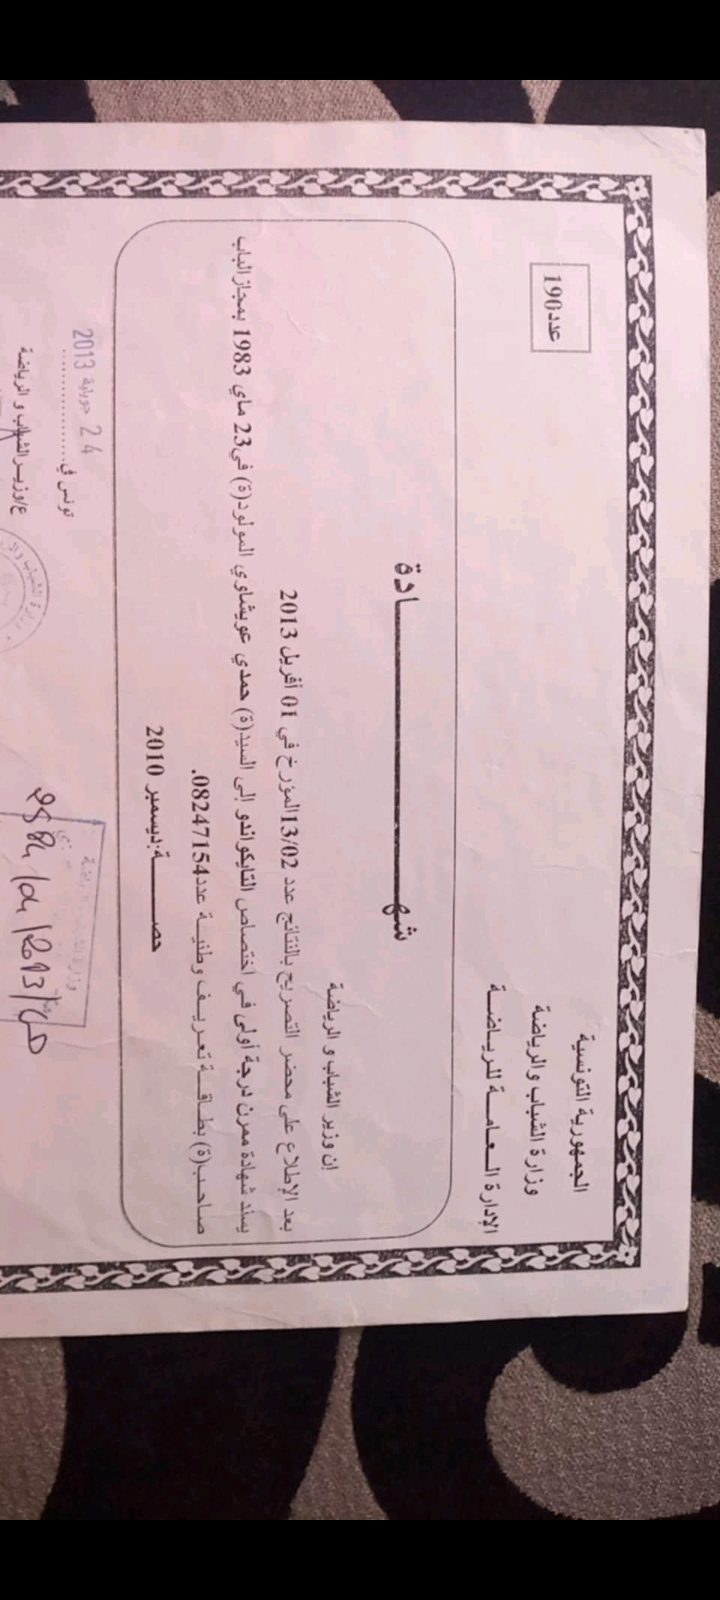 الجمهورية التونسية
وزارة الشباب والرياضة
الإدارة العامة للرياضة
عدد190
شهـــــــادة
إن وزير الشباب و الرياضة
بعد الإطلاع على محضر التصريح بالنتائج عدد 13/02المؤرخ في 01 أفريل 2013
يسند شهادة ممرن درجة أولى في اختصاص التايكواندو إلى السيد(ة) حمدي عويشاوي المولود(ة) في23 ماي 1983 بمجاز الباب
صاحب(ة) بطاقة تعريف وطنية عدد08247154.
حصـــة:ديسمبر 2010
تونس في 24 جويلية 2013
ع/وزير الشباب و الرياضة